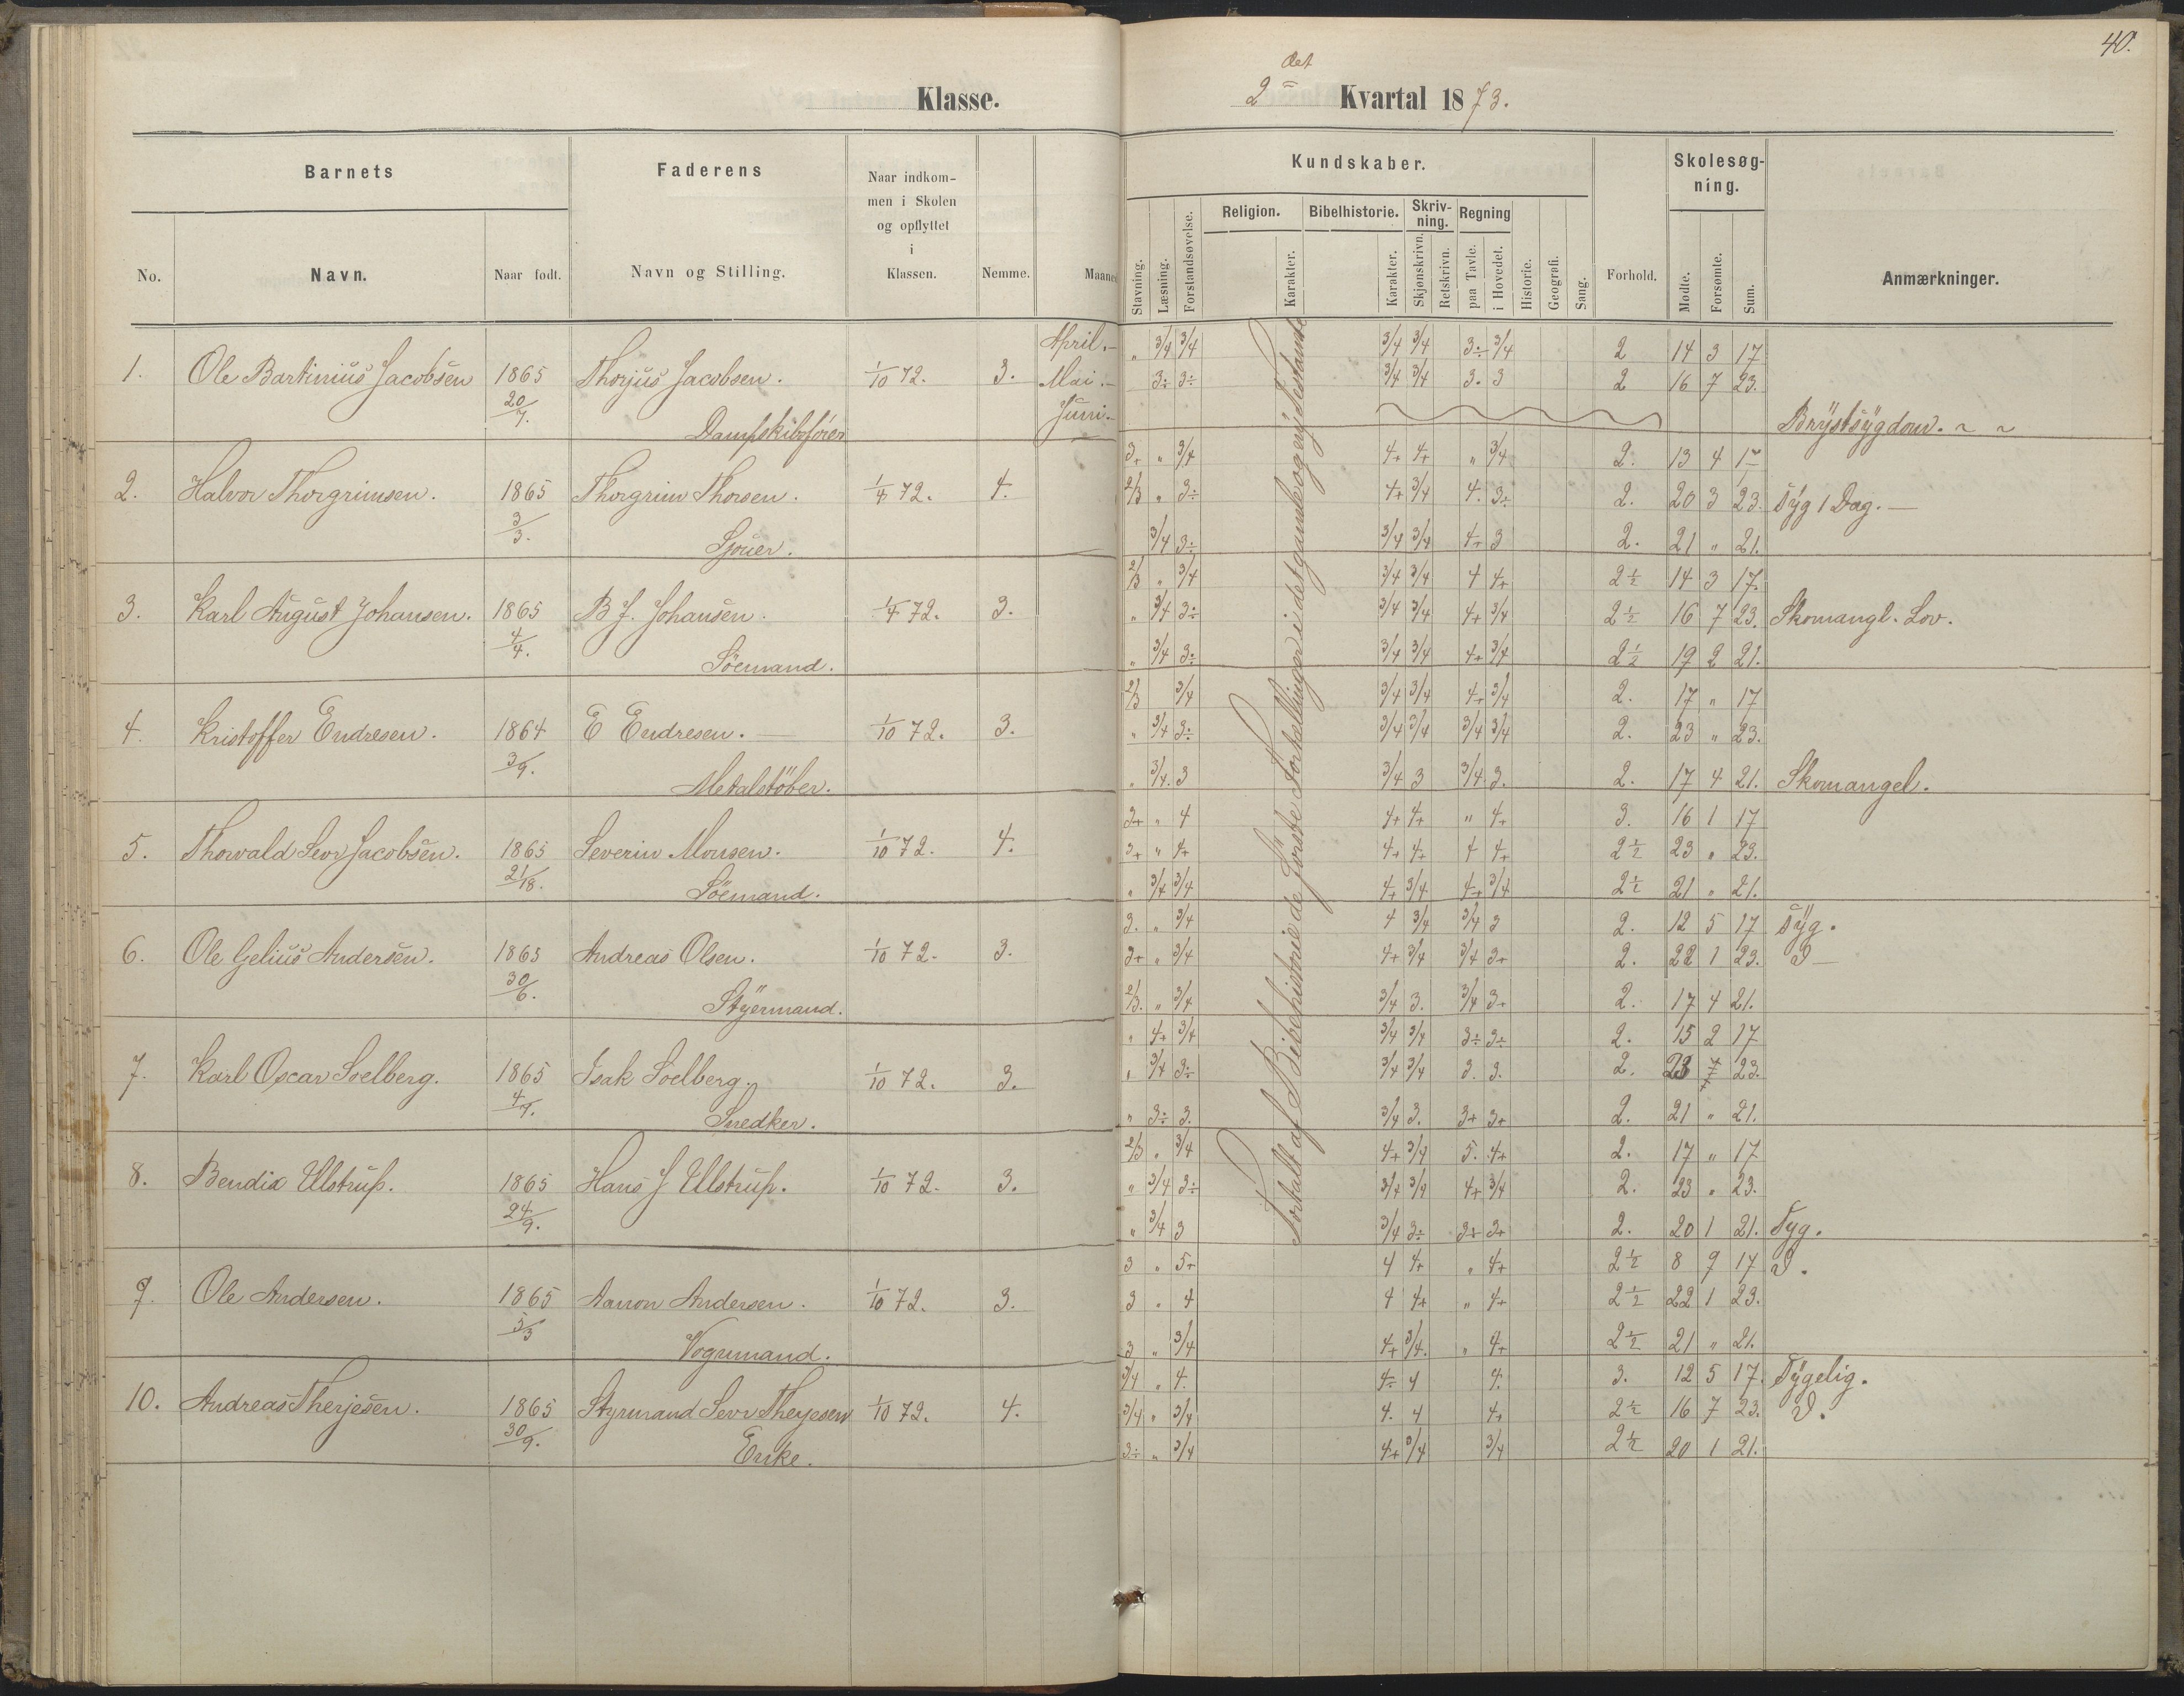 40.
Klasse.
2det Kvartal 1873.
Barnets
Faderens
Naar indkom-
men i Skolen
og opflyttet
i
Klassen.
Nemme.
Maaned
No.
Navn.
Naar født.
Navn og Stilling.
Kundskaber.
Stavning.
Læsning.
Forstandsøvelse.
Religion.
Karakter.
Bibelhistorie.
Karakter.
Skriv-
ning.
Skjønskrivn.
Retskrivn.
Regning
paa Tavle.
i Hovedet.
Historie.
Geografi.
Sang.
Forhold.
Skolesøg-
ning.
Mødte.
Forsømte.
Sum.
Anmærkninger.
Fortalt af Bibelhistorie de förste Fortællinger i det gamle og nye Testamente
1. Ole Bartinius Jacobsen 1865 20/7. Thorjus Jacobsen. 1/10 72. 3.
Dampskibsförer
April. „ 3/4 3/4 3/4 3/4 3÷ 3/4 2 14 3 17
Mai. 3÷ 3÷ 3/4 3/4 3. 3 2 16 7 23.
Juni. Brÿstsÿgdom.
2. Halvor Thorgrimsen. 1865 3/3. Thorgrim Thorsen. 1/4 72. 4.
Sjouer.
3+ „ 3/4 4+ 4+ „ 3/4 2. 13 4 17
2/3 „ 3÷ 4+ 3/4 4. 3÷ 2. 20 3 23. Syg 1 Dag.
3/4 3÷ 3/4 3/4 4+ 3 2. 21 „ 21.
3. Karl August Johansen. 1865 4/4. B J. Johansen. 1/4 72. 3.
Söemand.
2/3 „ 3/4 3/4 3/4 4 4+ 2½ 14 3 17.
„ 3/4 3÷ 3/4 3/4 4+ 3/4 2½ 16 7 23. Skomangl. Lov.
„ 3/4 3÷ 3/4 3/4 4+ 3/4 2½ 19 2 21.
4. Kristoffer Endresen. 1864 3/9. E Endresen. 1/10 72. 3.
Metalstöber.
2/3 3/4 3/4 3/4 4+ 3/4 2. 17 „ 17
„ 3/4 3÷ 3/4 3/4 3/4 3/4 2. 23 „ 23.
„ 3/4. 3 3/4 3 3/4 3. 2. 17 4 21. Skomangel.
5. Thorvald Sevr Jacobsen. 1865 Severin Monsen. 1/10 72. 4.
Söemand.
3+ „ 4 4+ 4+ „ 4+ 3. 16 1 17
3+ „ 4+ 4+ 4+ 4 4+ 2½ 23 „ 23.
„ 3/4 3/4 4+ 3/4 4+ 3/4 2½ 21 „ 21.
6. Ole Gelius Andersen. 1865 30/6. Andreas Olsen. 1/10 72. 3.
Stÿrmand.
3. „ 3/4 4 3/4 3/4 3 2. 12 5 17 Sÿg.
3+ „ 3/4 4+ 3/4 3/4 3+ 2. 22 1 23.
2/3. „ 3/4 3/4 3. 3/4 3+ 2. 17 4 21.
7. Karl Oscar Soelberg. 1865 Isak Soelberg. 1/10 72. 3.
Snedker.
„ 4+ 3/4 3/4 3/4 3÷ 3÷ 2. 15 2 17
„ 3/4 3÷ 3/4 3/4 3. 3. 2. 23 23.
„ 3÷ 3. 3/4 3. 3+ 3+ 2. 21 „ 21.
8. Bendix Ulstrup. 1865 24/9. Hans J Ulstrup. 1/10 72. 3.
2/3 „ 3/4 4+ 3/4 5. 4+ 2. 17 „ 17
„ 3/4 3÷ 3/4 3/4 4+ 3/4 2. 23 „ 23.
„ 3/4 3 3/4 3÷ 3+ 3+ 2. 20 1 21. Syg.
9. Ole Andersen. 1865 5/3 Aanon Andersen. 1/10 72. 3.
Vognmand.
3 „ 5+ 4 4+ „ 4+ 2½ 8 9 17
3 „ 4 4 4+ „ 4+ 2½ 22 1 23.
3 „ 3/4 4+ 3/4. „ 4+ 2½ 21 „ 21.
10. Andreas Therjesen. 1865 30/9. Styrmand Sevr Therjesen 1/10 72. 4.
Enke.
3/4 „ 4. 4÷ 4 4. 3. 12 5 17. Sÿgelig.
3/4 „ 3/4 4. 4 4+ 2½ 16 7 23.
3÷ „ 3/4 4+ 3/4 3/4 2½ 20 1 21.